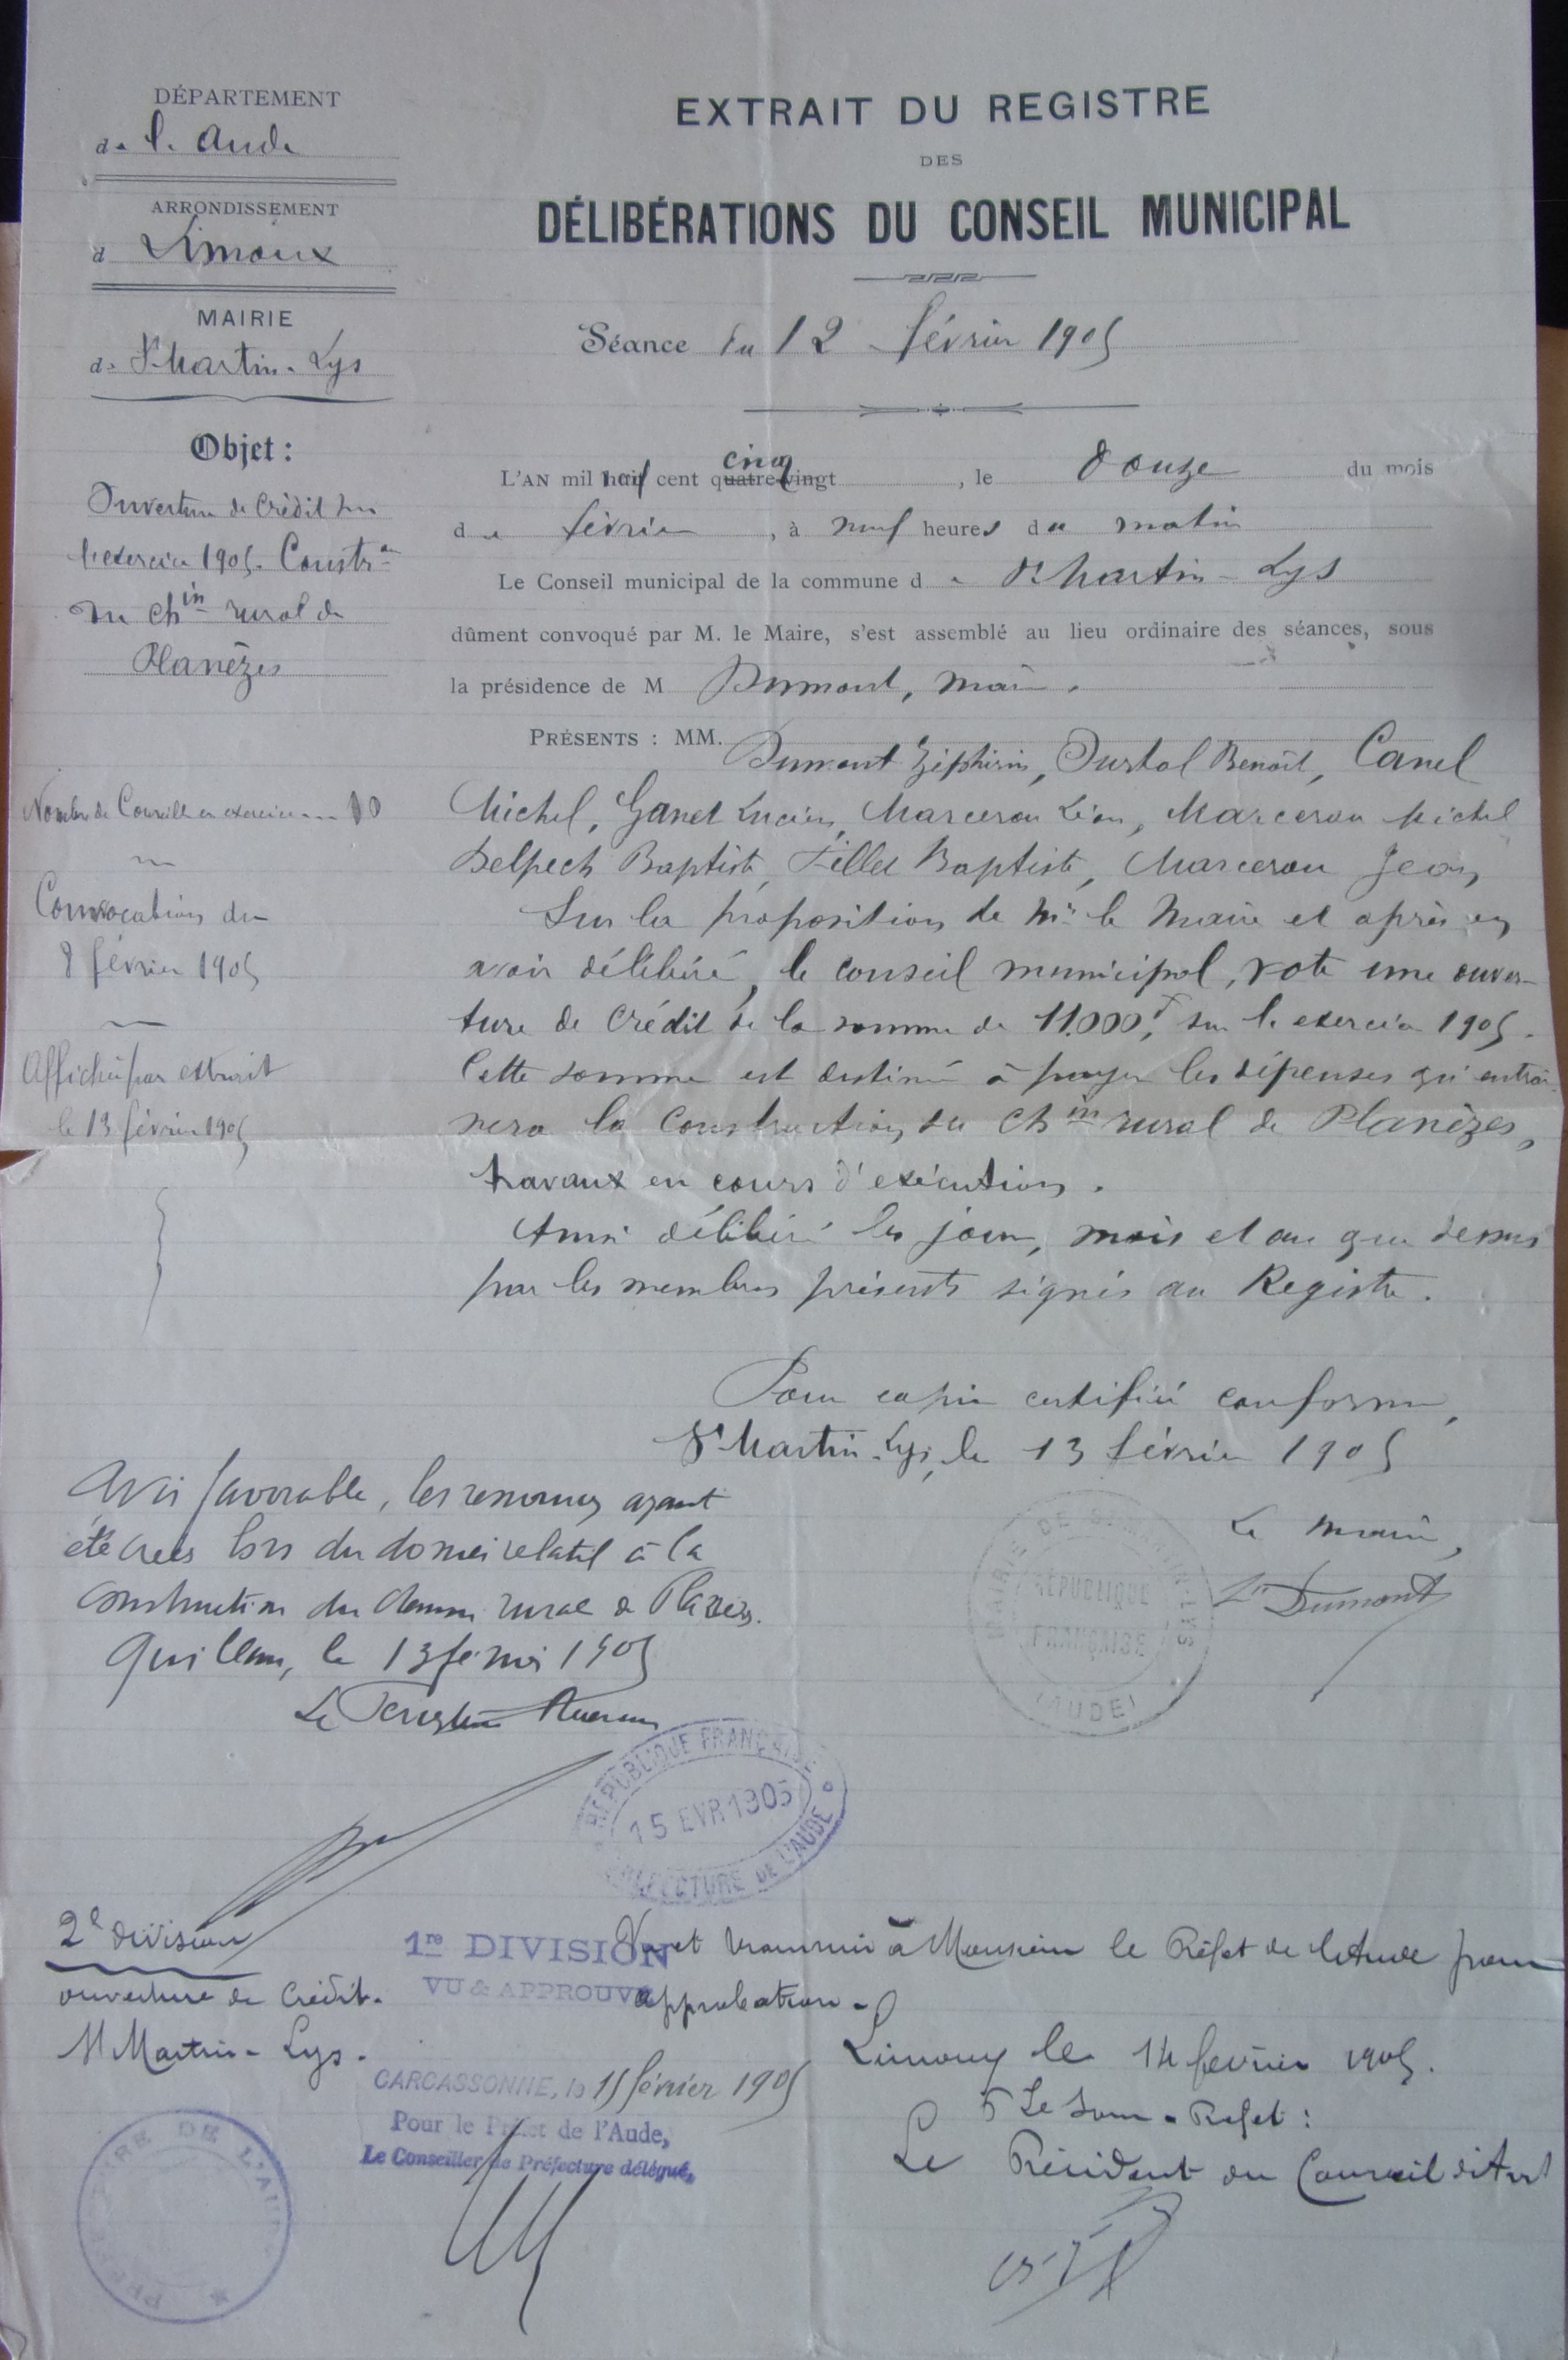 DÉPARTEMENT
de l'Aude
ARRONDISSEMENT
d Limoux
MAIRIE
de St Martin-Lys
Objet :
Ouverture de Crédit sur
l'exercice 1905. Constron
du chin rural de
Planèzes
Nombre de Conseillers en exercice... 10
Convocation du
8 février 1905
Affiché par extrait
le 13 février 1905
EXTRAIT DU REGISTRE
DES
DÉLIBÉRATIONS DU CONSEIL MUNICIPAL
Séance du 12 février 1905
L'AN mil neuf cent cinq quatre-vingt , le douze du mois
de février , à neuf heures du matin
Le Conseil municipal de la commune de St Martin-Lys
dûment convoqué par M. le Maire, s'est assemblé au lieu ordinaire des séances, sous
la présidence de M Dumont, maire.
PRÉSENTS : MM.
Dumont Zéphirin, Benoît, Canel
Michel, Ganet Lucien, Marceron Léon, Marceron Michel
Delpech Baptiste, Baptiste, Marceron Jean,
Sur la proposition de Mr le Maire et après en
avoir délibéré, le conseil municipal, vote une ouver-
ture de Crédit de la somme de 11.000f, sur l'exercice 1905.
Cette somme est destinée à payer les dépenses qu'entraî-
nera la Construction du Chin rural de Planèzes,
travaux en cours d'exécution.
Ainsi délibéré les jour, mois et an que dessus
par les membres présents signés au Registre.
Pour copie certifiée conforme,
St Martin-Lys, le 13 février 1905
Le maire,
Z Dumont
MAIRIE DE ST MARTIN-LYS
RÉPUBLIQUE
FRANÇAISE
(AUDE)
Avis favorable, les ressources ayant
été créés lors du dossier relatif à la
construction du chemin rural de Planèzes.
Quillan, le 13 février 1905
Le
RÉPUBLIQUE FRANÇAISE
15 EVR 1905
PRÉFECTURE DE L'AUDE
2e division
ouverture de Crédit.
St Martin-Lys.
1re DIVISION
VU & APPROUVÉ
CARCASSONNE, le 15 février 1905
Pour le Préfet de l'Aude,
Le Conseiller de Préfecture délégué,
PRÉFECTURE DE L'AUDE
Vu et transmis à Monsieur le Préfet de l'Aude pour
approbation.
Limoux le 14 février 1905.
Le Sous-Préfet :
Le Président du Conseil d'Arrt